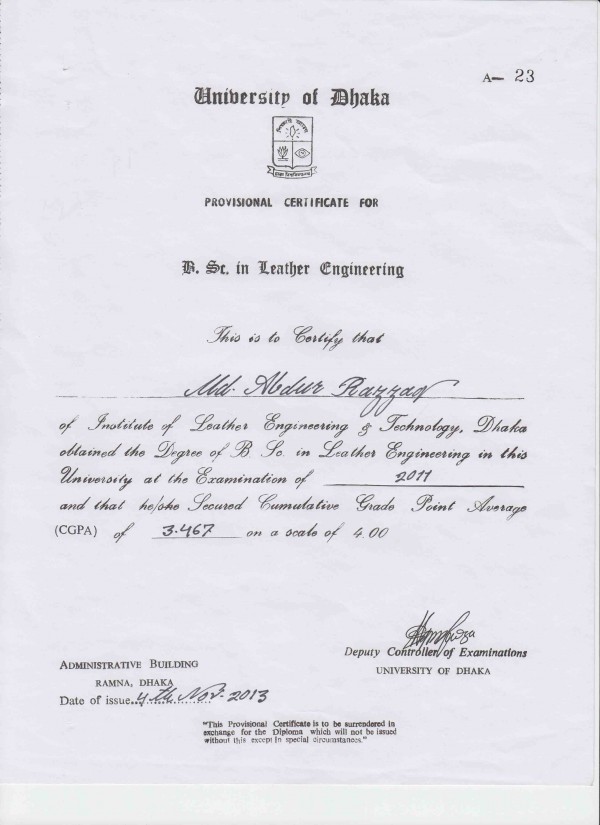 A— 23
University of Dhaka
PROVISIONAL CERTIFICATE FOR
B. Sc. in Leather Engineering
This is to Certify that
Md. Abdur Razzaq
of Institute of Leather Engineering & Technology, Dhaka
obtained the Degree of B Sc. in Leather Engineering in this
University at the Examination of 2011
and that he/she Secured Cumulative Grade Point Average
(CGPA) of 3.467 on a scale of 4.00
Deputy Controller of Examinations
UNIVERSITY OF DHAKA
ADMINISTRATIVE BUILDING
RAMNA, DHAKA
Date of issue..4th Nov. 2013
"This Provisional Certificate is to be surrendered in
exchange for the Diploma which will not be issued
without this except in special circumstances."